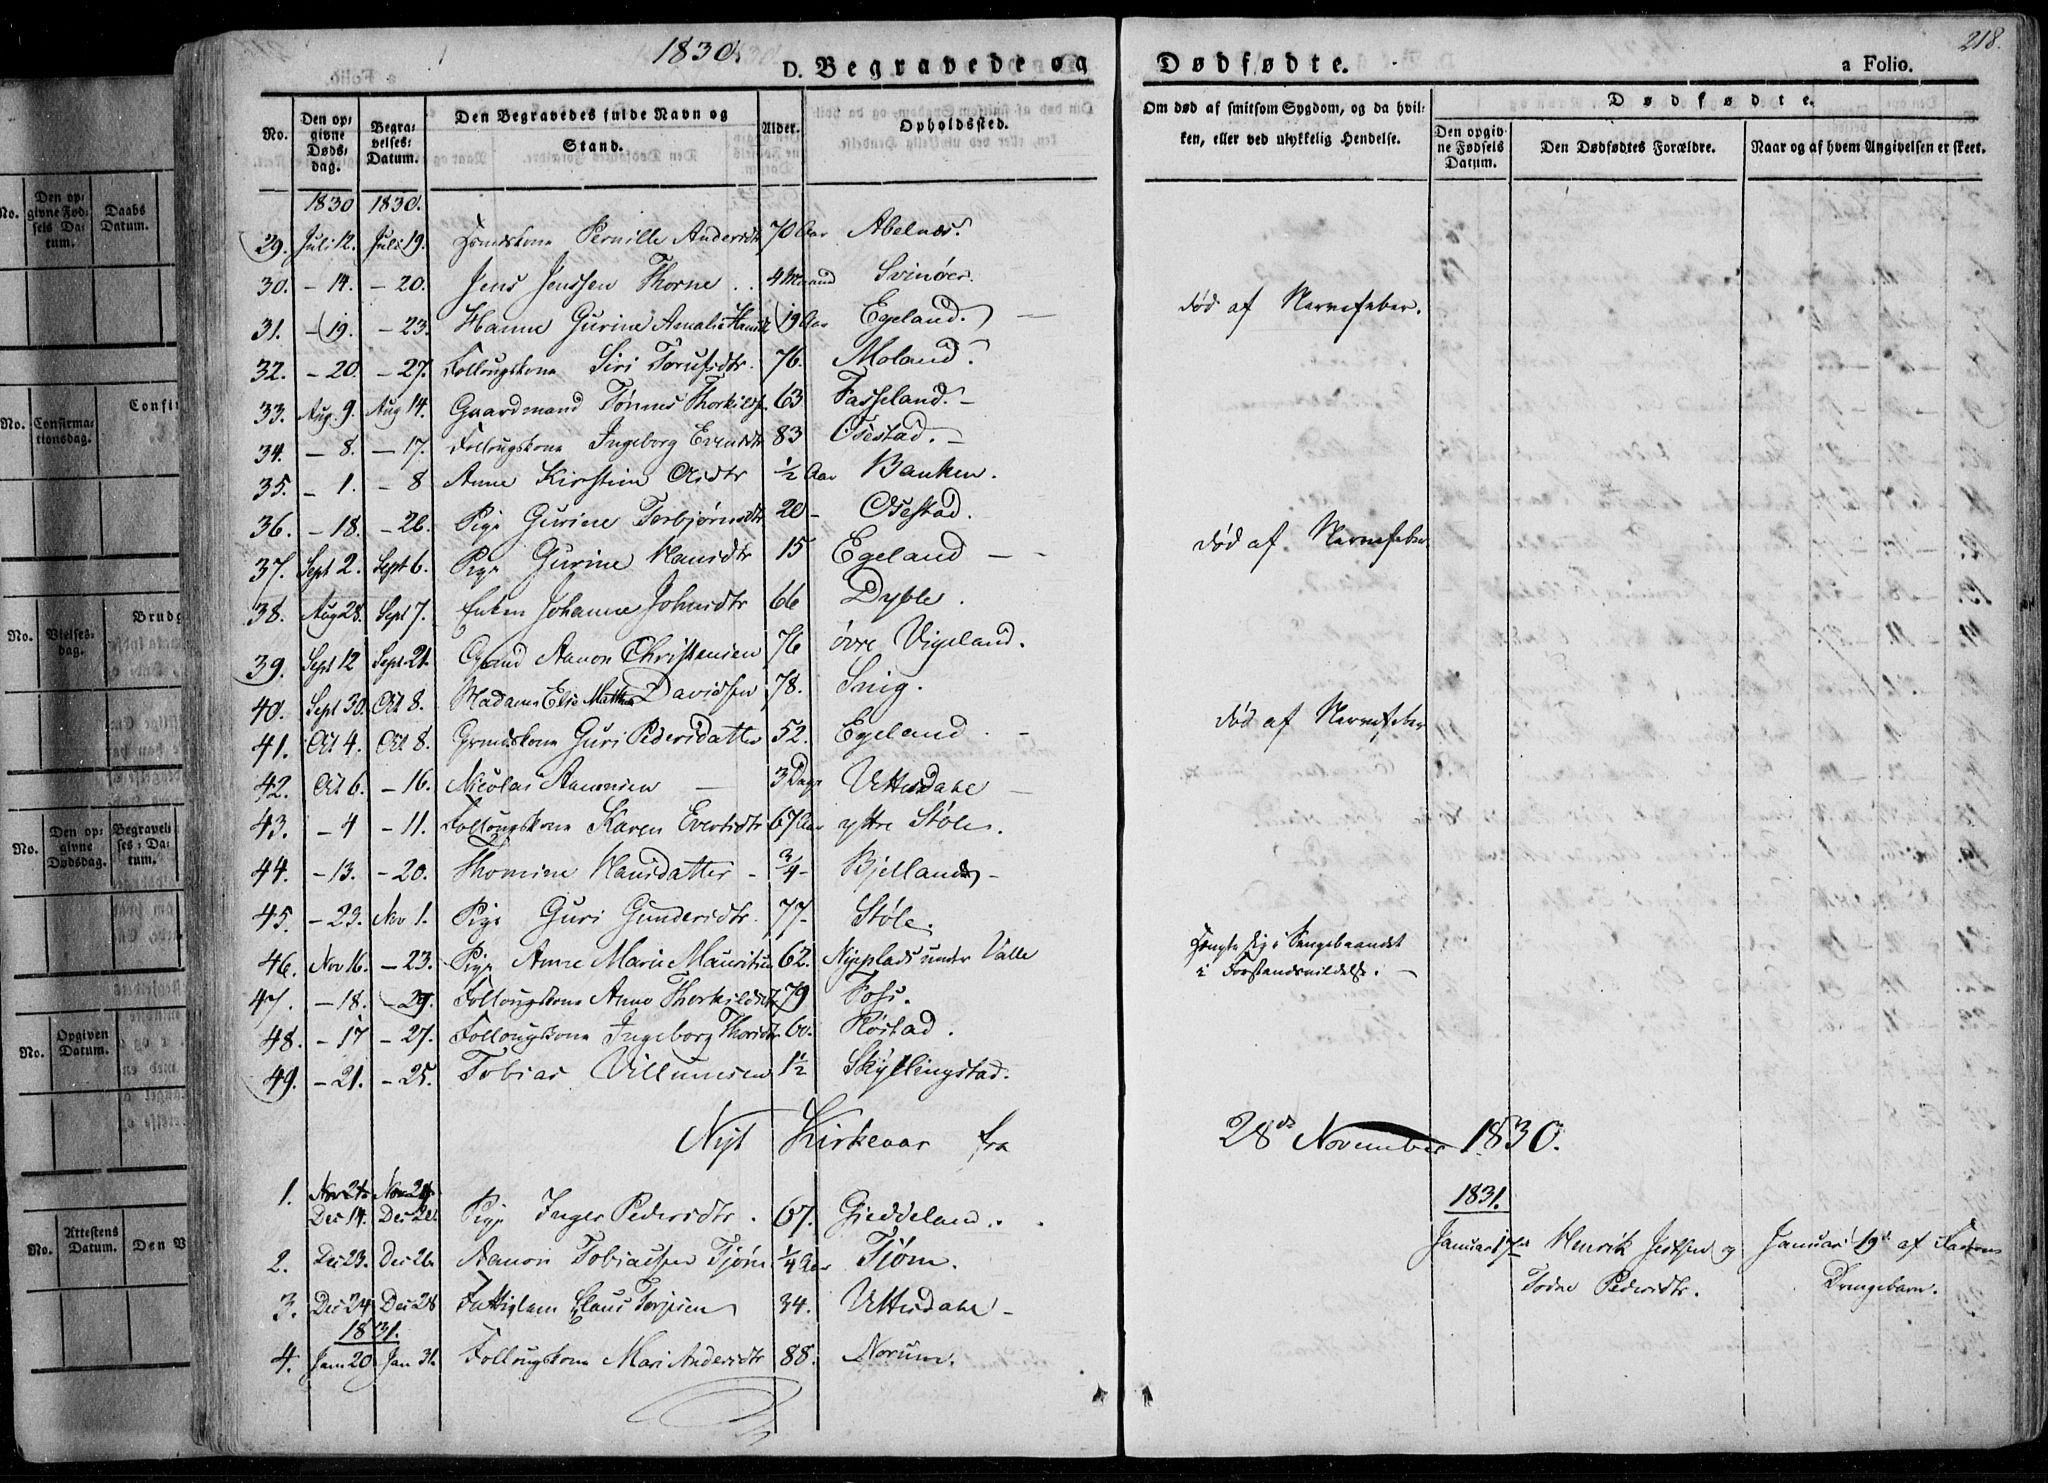 1830.
D. Begravede og Dødfødte.
218.
a Folio.
No.
Den opgivne Dødsdag.
Begravelses-Datum.
Den Begravedes fulde Navn og Stand.
Alder.
Opholdssted.
Om død af smitsom Sygdom, og da hvilken, eller ved ulykkelig Hendelse.
Dødfødte.
Den opgivne Fødsels Datum.
Den Dødfødtes Forældre.
Naar og af hvem Angivelsen er skeet.
1830 1830.
29. Juli 12. Juli 19. Pernille Andersdtr 70 Aar Abelnæs.
30. - 14. - 20. Jens Jenssen Thorne .. 4 Maaned Svinøer.
31. - 19. - 23. Hanne Gurine Amalie Hansdtr 19 Aar Egeland. død af Nervefeber.
32. - 20. - 27. Follougskone Siri Torufsdtr. 76. Moland.
33. Aug. 9. Aug 14. Gaardmand Tønnes Thorkilds. 63 Fasseland.
34. - 8. - 17. Follougskone Ingeborg Evensdtr 83 Osestad.
35. - 1. - 8 Anne Kirstine Osdtr ½ Aar Banken.
36. - 18. - 26. Pige Gurine Torbjørnsdtr 20 - Osestad.
37. Sept 2. Sept 6. Pige Gurine Hansdtr 15 Egeland - - død af Nervefeber
38. Aug 28. Sept 7. Enken Johanne Johnsdtr 66 Dyble.
39. Sept 12 Sept 21. Gmd Aanon Christensen 76 øvre Vigeland.
40. Sept 30. Oct 8. Madam Elsse Mathea Davidsen 78. Snig.
41. Oct 4. Oct 8. Grmdskone Guri Pedersdatter 52. Egeland. - død af Nervefeber
42. Oct 6. - 16. Nicolai Aanonsen - 3 Dage Uttesdahl
43. - 4 - 11. Follougskone Karen Evertsdtr 67 Aar ytre Støle.
44. - 13. - 20. Thomine Hansdatter - ¾ - Bjelland -
45. - 23. Nov 1. Pige Guri Gundersdtr. 77 - Støle.
46. Nov 16. - 23. Pige Anne Marie Mauritsen 62. Nyeplads under Valle hengte sig i Sengebaandet
i Forstandsvildelse. -
47. - 18. - 29. Follougskone Anne Thorkildsdtr 79 Foss.
48. - 17 - 27. Follougskone Ingeborg Thorsdtr 60. Røstad.
49. - 21. - 25. Tobias Villumsen 1½ Skyllingstad.
Nyt Kirkeaar fra 28de November 1830.
1. Nov 21. Nov 29.
Dec 14. Dec 21. Pige Inger Pedersdtr. 67. Gieddeland.
2. Dec 23. Dec 26. Aanon Tobiassen Tjøm ¼ Aar Tjøm.
3. Dec 24 Dec 28 Fattiglem Claus Terjesen 34. Uttesdahl -
1831.
4. Jan 20 Jan 31. Follougskone Mari Andersdtr 88. Norum.
1831.
Januar 17de Henrik Jensen og Januar 19de af Faderen
Todne Pedersdtr. Drengebarn.
No.
Den opgivne Fødsels Datum.
Daabs Datum.
No.
Confirmationsdag.
No.
Vielsesdag.
No.
Den opgivne Dødsdag.
Begravelses-Datum.
No.
Opgiven Datum.
No.
Attestens Datum.